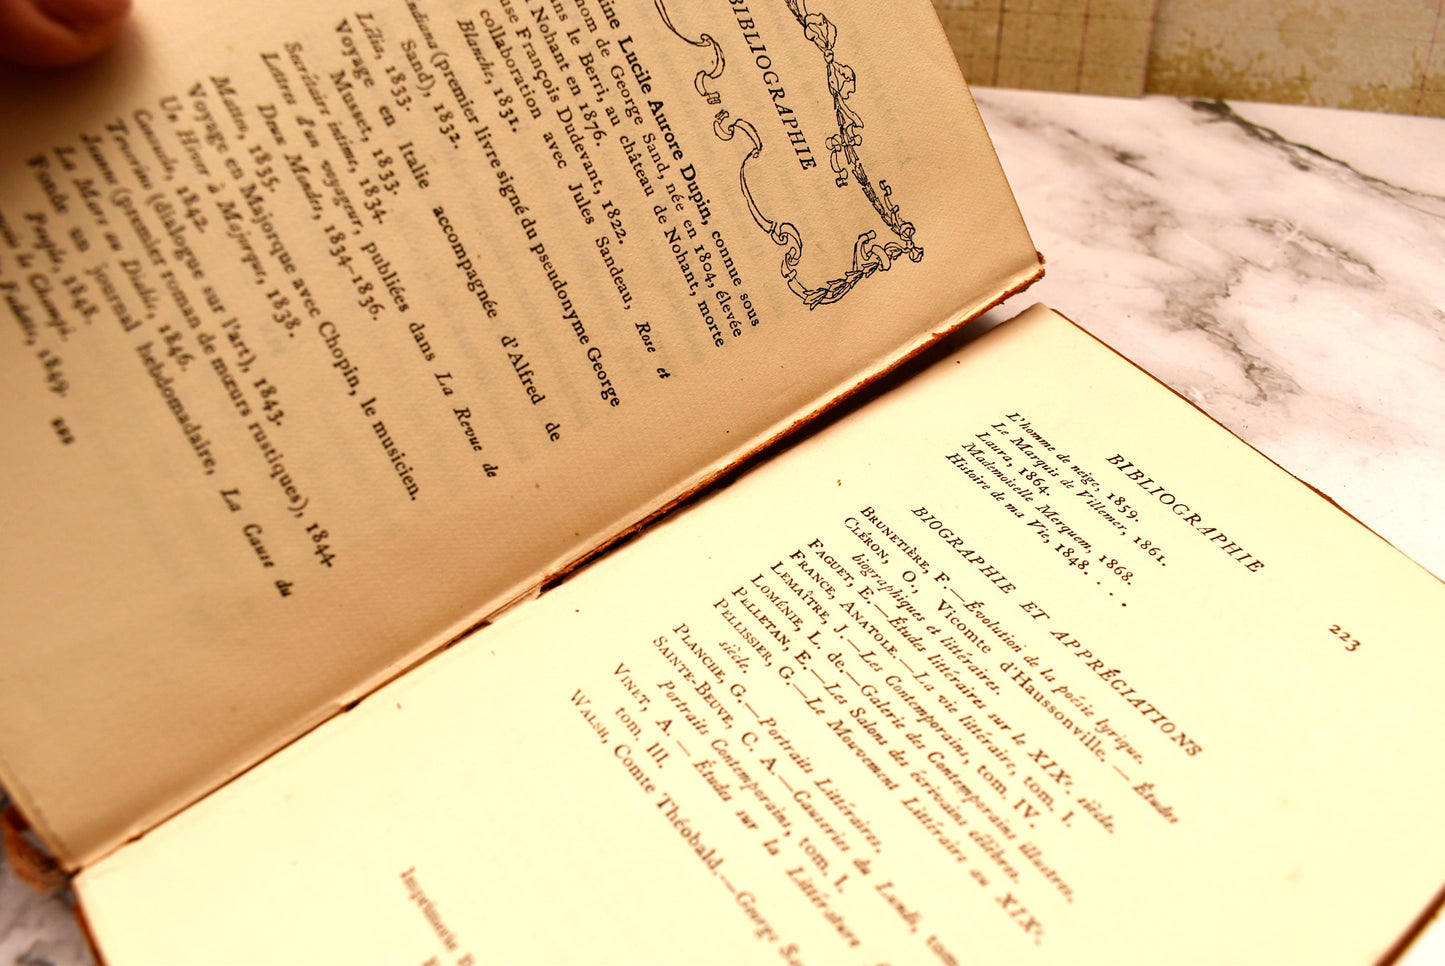 BIBLIOGRAPHIE
ine Lucile Aurore Dupin, connue sous
nom de George Sand, née en 1804, élevée
ns le Berri, au château de Nohant, morte
Nohant en 1876.
use François Dudevant, 1822.
collaboration avec Jules Sandeau, Rose et
Blanche, 1831.
ndiana (premier livre signé du pseudonyme George
Sand), 1832.
Lélia, 1833.
Voyage en Italie accompagnée d'Alfred de
Musset, 1833.
Secrétaire intime, 1834.
Lettres d'un voyageur, publiées dans La Revue de
Deux Mondes, 1834-1836.
Matteo, 1835.
Voyage en Majorque avec Chopin, le musicien.
Un Hiver à Majorque, 1838.
Consuelo, 1842.
(dialogue sur l'art), 1843.
Jeanne (premier roman de mœurs rustiques), 1844.
La Mare au Diable, 1846.
Fonde un journal hebdomadaire, La Cause du
Peuple, 1848.
le Champi,
Fadette, 1849
223
BIBLIOGRAPHIE
L'homme de neige, 1859.
Le Marquis de Villemer, 1861.
Laura, 1864.
Mademoiselle Merquem, 1868.
Histoire de ma Vie, 1848. . . .
BIOGRAPHIE ET APPRÉCIATIONS
BRUNETIÈRE, F.—Évolution de la poésie lyrique.
CLÉRON, O., Vicomte d'Haussonville. — Études
biographiques et littéraires.
FAGUET, E.—Études littéraires sur le XIXe. siècle.
FRANCE, ANATOLE.—La vie littéraire, tom. I.
LEMAÎTRE, J.—Les Contemporains, tom. IV.
LOMÉNIE, L. de.—Galerie des Contemporains illustres.
PELLETAN, E.—Les Salons des écrivains célèbres.
PELLISSIER, G.—Le Mouvement Littéraire au XIXe.
siècle.
PLANCHE, G.—Portraits Littéraires.
SAINTE-BEUVE, C. A.—Causeries du Lundi, tom
Portraits Contemporains, tom. I.
VINET, A. — Études sur la Littérature
tom. III.
WALSH, Comte Théobald.—George Sa
Imprimerie